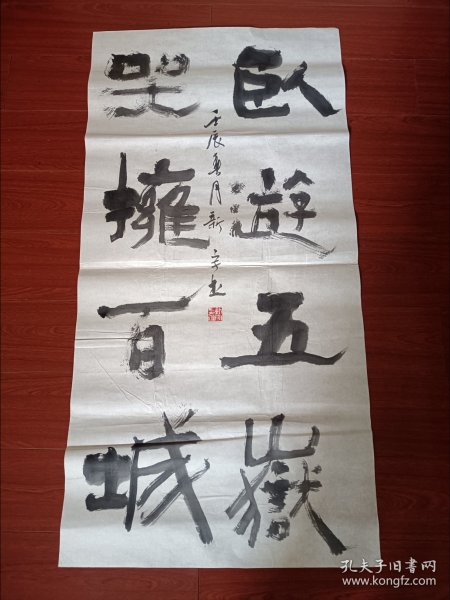 臥遊五嶽
坐擁百城
壬辰夏月新宇书
孔夫子旧书网
www.kongfz.com